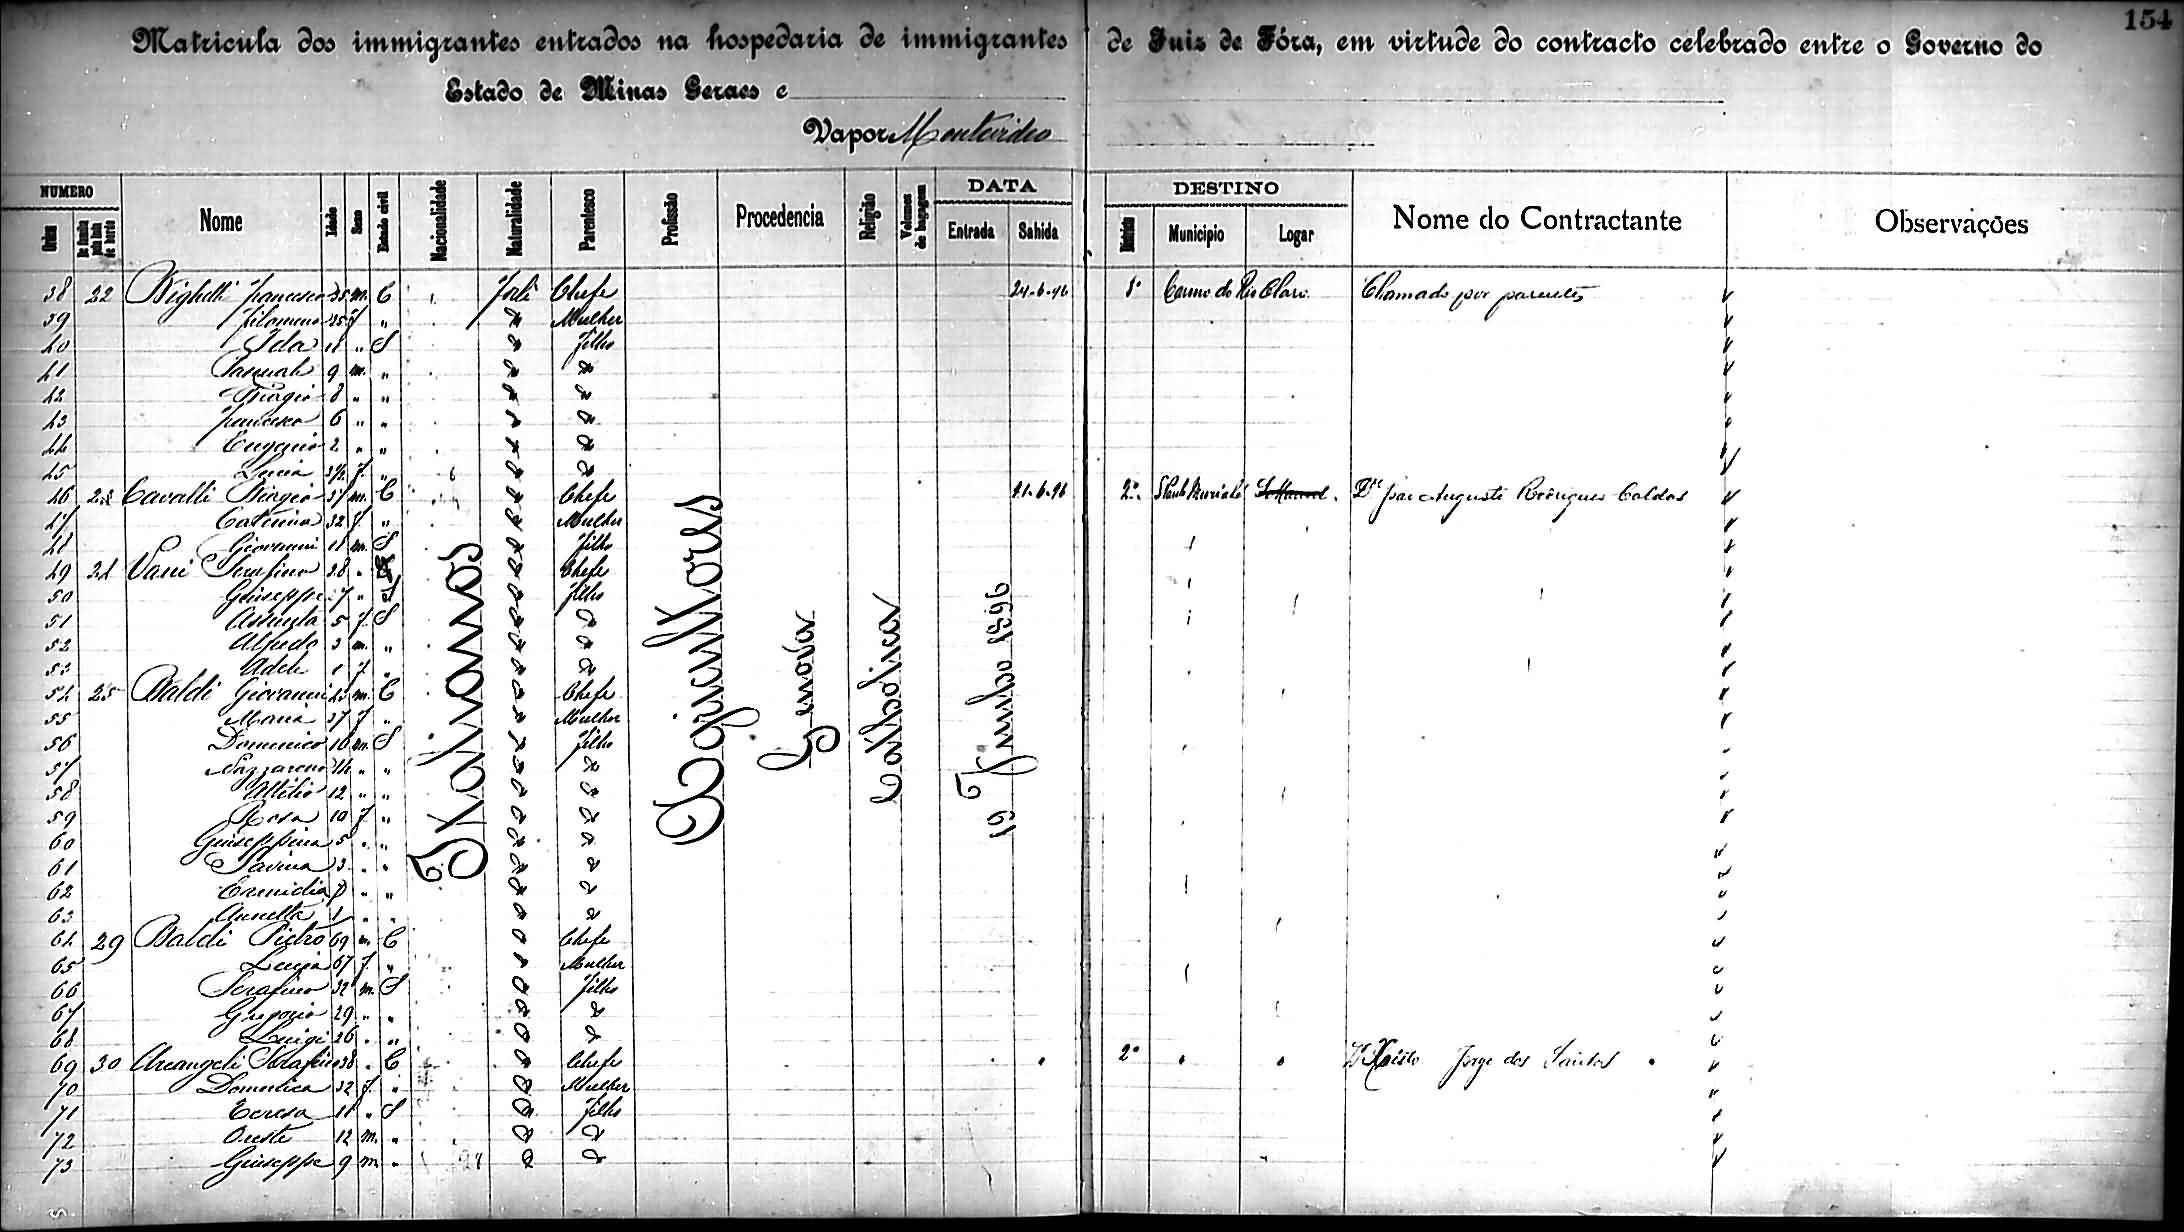 154
Matricula dos immigrantes entrados na hospedaria de immigrantes de Juiz de Fóra, em virtude do contracto celebrado entre o Governo do
Estado de Minas Geraes e
Vapor Montevideo
NUMERO DATA DESTINO
Ordem De familia pela lista de bordo Nome Idade Sexo Estado civil Nacionalidade Naturalidade Parentesco Profissão Procedencia Religião Volumes de bagagem Entrada Sahida Districto Municipio Logar Nome do Contractante Observações
38 22 Bighetti Francesco 35 m. C Forli Chefe 24-6-96 8º Carmo do Rio Claro Chamado por parentes
39 Filomena 35 f " " Mulher
40 Ida 11 " S " Filho
41 Pasquale 9 m. " " "
42 Biagio 8 " " " "
43 Francesco 6 " " " "
44 Eugenio 2 " " " "
45 Lucia 3/12 f. " " "
46 23 Cavalli Biagio 37 m. C " Chefe 21-6-96 2º S Paulo Muriahé S. Manoel Dr José Augusto Rodrigues Caldas
47 Caterina 32 f. " " Mulher
48 Giovanni 11 m. S " Filho
49 24 Vani Serafino 38 " " Chefe
50 Giuseppe 7 " S " Filho
51 Assunta 5 f. S " "
52 Alfredo 3 m. " " "
53 Adele 1 f. " " "
54 25 Baldi Giovanni 45 m. C " Chefe
55 Maria 37 f " " Mulher
56 Domenico 16 m. S " Filho
57 Nazzareno 14 " " " "
58 Attilio 12 " " " "
59 Rosa 10 f. " " "
60 Giuseppina 5 " " " "
61 Savina 3 " " " "
62 Ermidia " " " "
63 Annetta 1 " " " "
64 29 Baldi Pietro 69 m. C " Chefe
65 Lucia 67 f. " " Mulher
66 Serafino 32 m. S " Filho
67 Gregorio 29 " " " "
68 Luigi 26 " " " "
69 30 Arcangeli Serafino 38 " C " Chefe " " 2º " " Xisto Jorge dos Santos
70 Domenica 32 f. " " Mulher
71 Teresa 11 " S " Filho
72 Oreste 12 m. " " "
73 Giuseppe 9 m " " "
Italianos
Agricultores
Genova
Catholica
19 Junho 1896